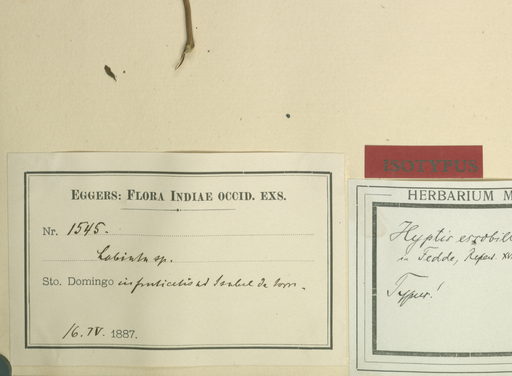 EGGERS: FLORA INDIAE OCCID. EXS.
Nr. 1545.
Labiata sp.
Sto. Domingo in fruticetis ad Isabel de torre.
16. IV. 1887.
ISOTYPUS
HERBARIUM M
Hyptis
in Fedde, Repert. XV
Typus!